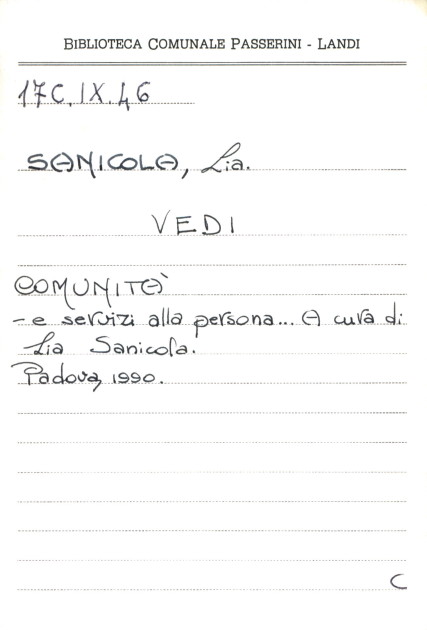 BIBLIOTECA COMUNALE PASSERINI - LANDI
17C.IX.46
SANICOLA, Lia.
VEDI
COMUNITÀ
- e servizi alla persona... A cura di
Lia Sanicola.
Padova, 1990.
C